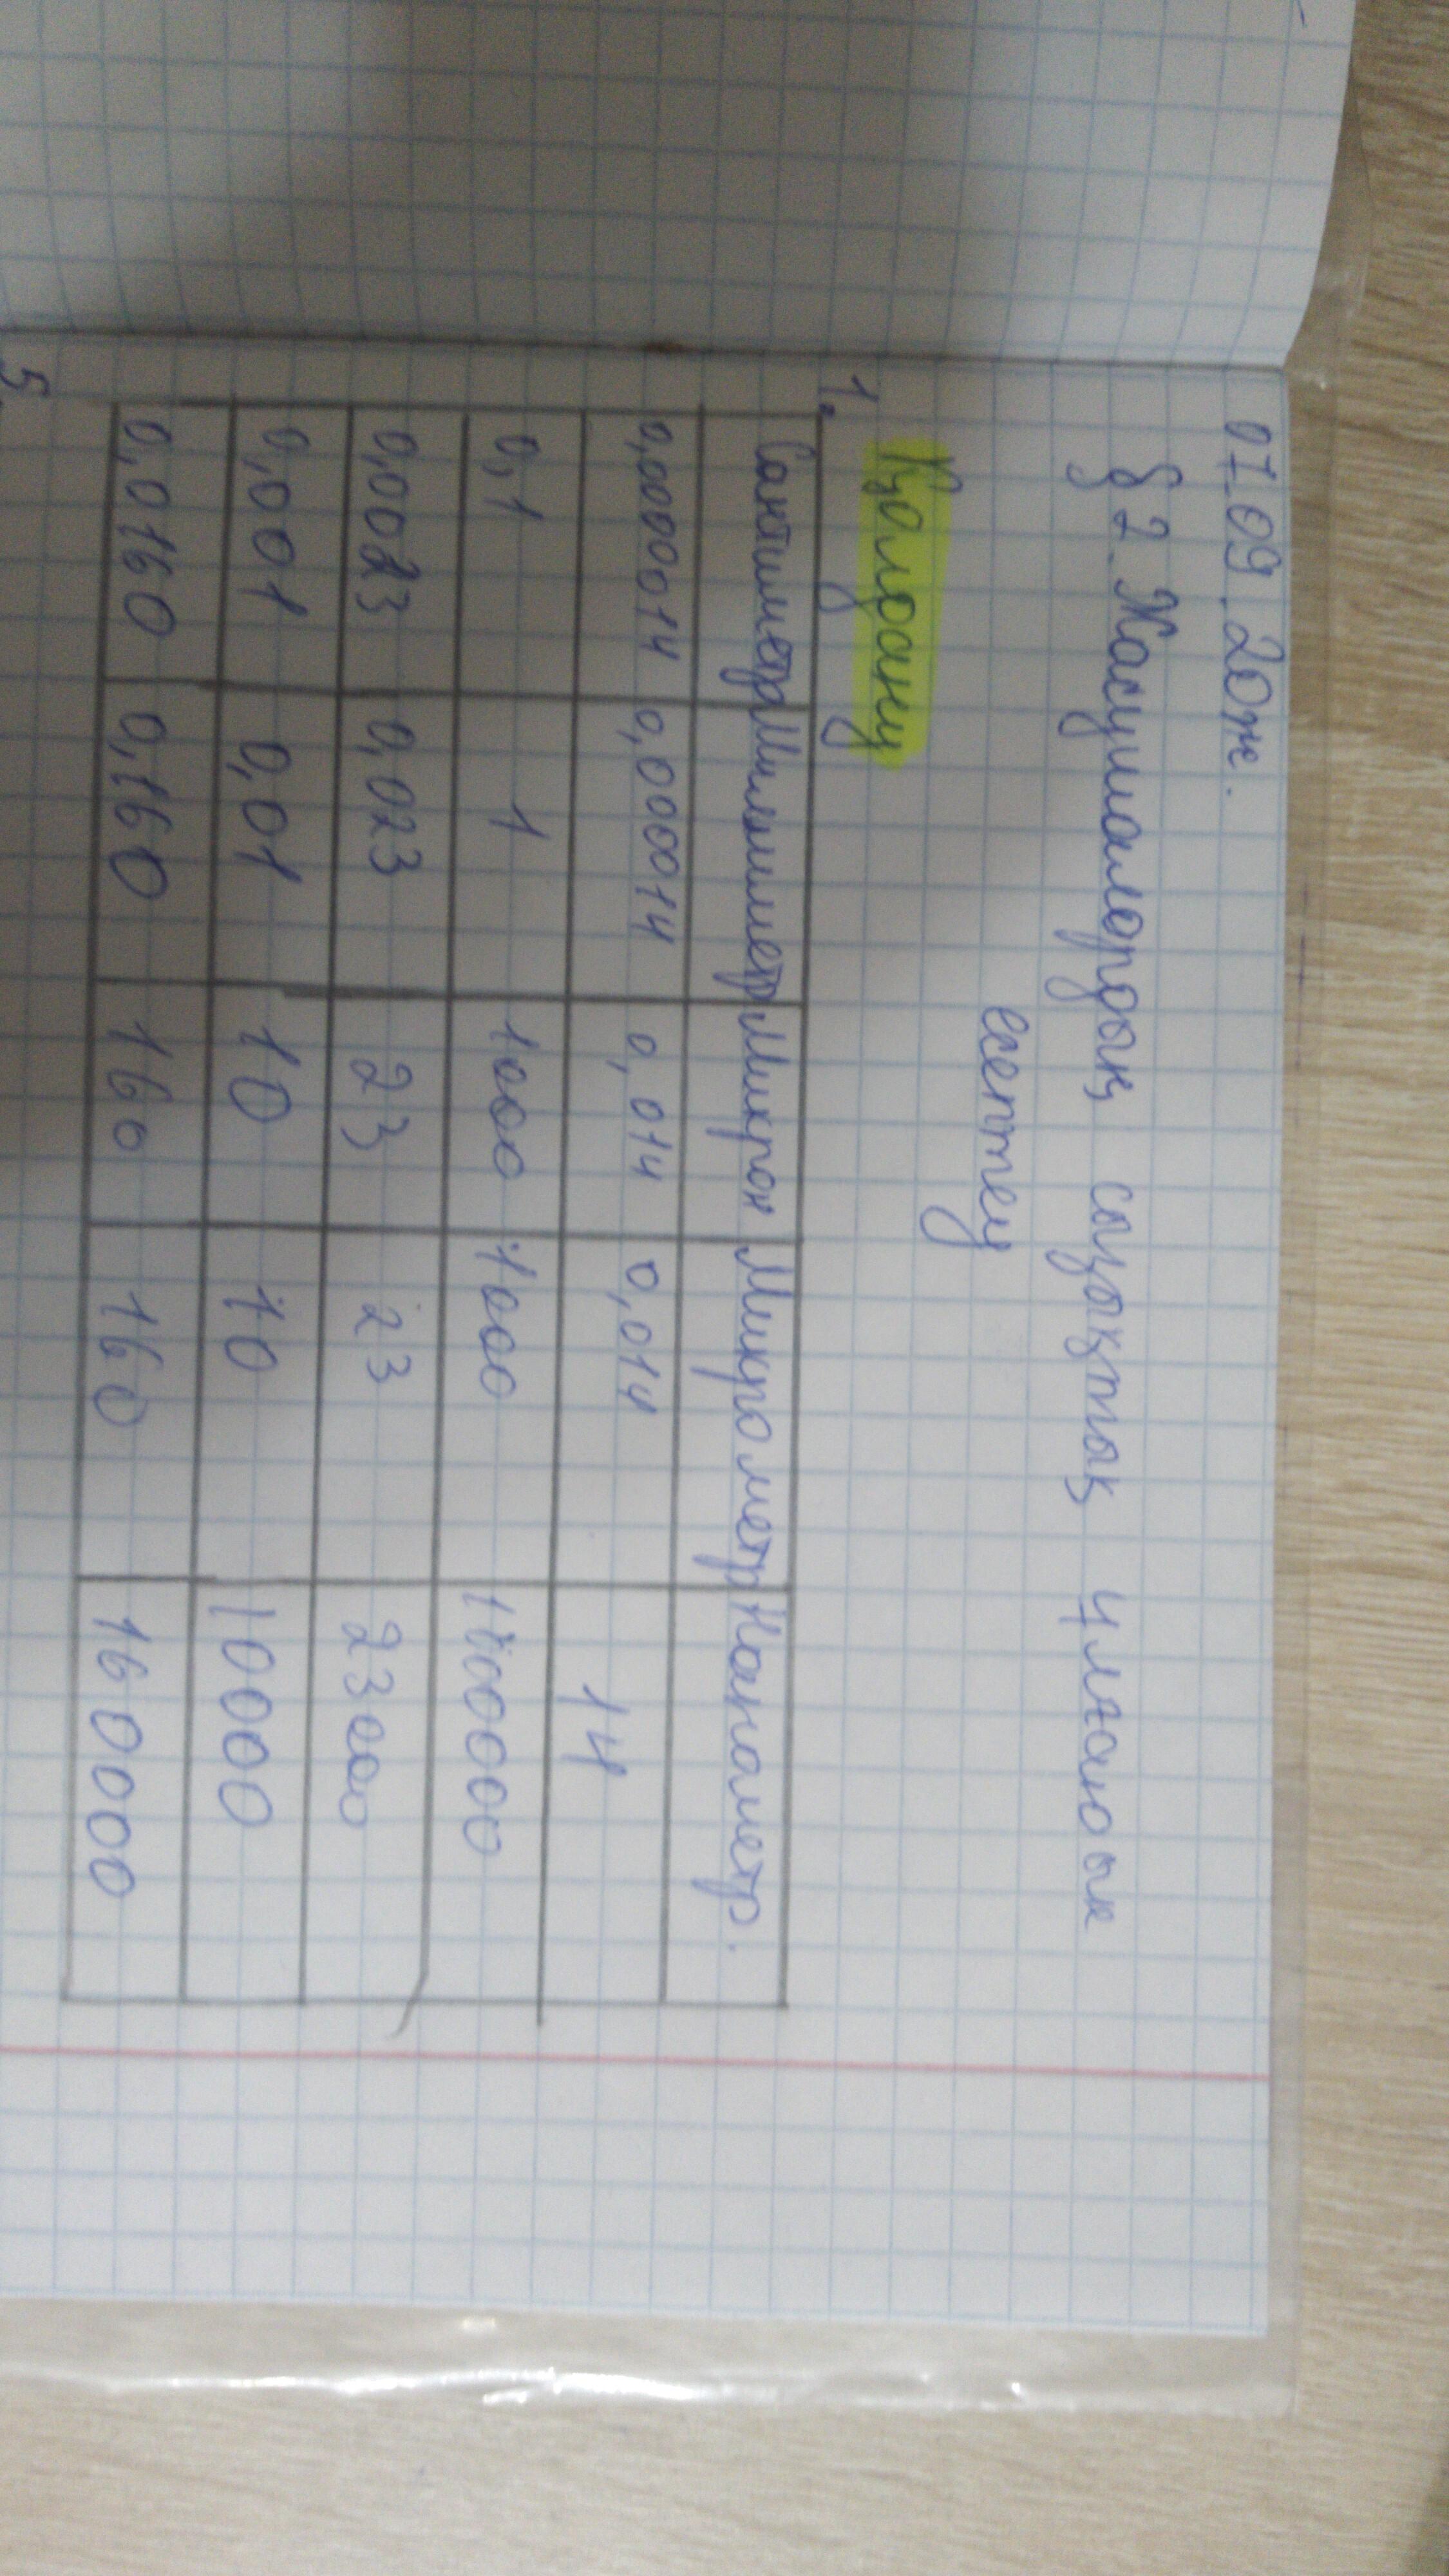 07.09.20ж.
§ 2. Жасушалардың сызықтық ұлғаюын
есептеу
Қолдану
1.
Сантиметр Миллиметр Микрон Микрометр Нанаметр.
0,0000014 0,000014 0,014 0,014 14
0,1 1 1000 1000 1000000
0,0023 0,023 23 23 23000
0,001 0,01 10 10 10000
0,0160 0,160 160 160 160000
5.